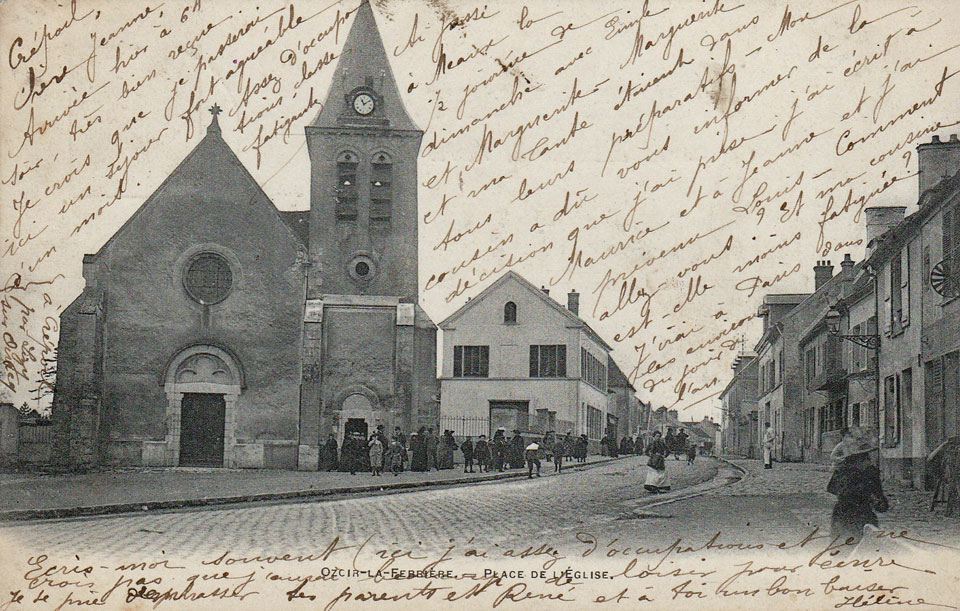 Crépoil,
Chère Jeanne,
Arrivée hier à 6H
soir très bien reçue
Je crois que je passerai
ici un séjour fort agréable
d'un mois.
Assez d'occupa
tions délasse
fatigue
Ai passé
à Meaux la
½ journée de
dimanche avec Emile
et Marguerite. Marguerite
et ma tante étaient dans
tous leurs préparatifs. Mon
cousin a dû vous informer de la
décision que j'ai prise j'ai écrit à
Maurice et à Jeanne et j'ai
prévenu Louis. Comment
allez-vous ? Et ma cousine
est-elle moins fatiguée ?
J'irai à Paris dans
les environs
du
Ecris-moi souvent (ici j'ai assez d'occupations et je ne
crois pas que j'aurai de loisir pour écrire
Je te prie d'embrasser tes parents et René et à toi un bon baiser
Hélène
OZOIR-LA-FERRIÈRE. — PLACE DE L'ÉGLISE.